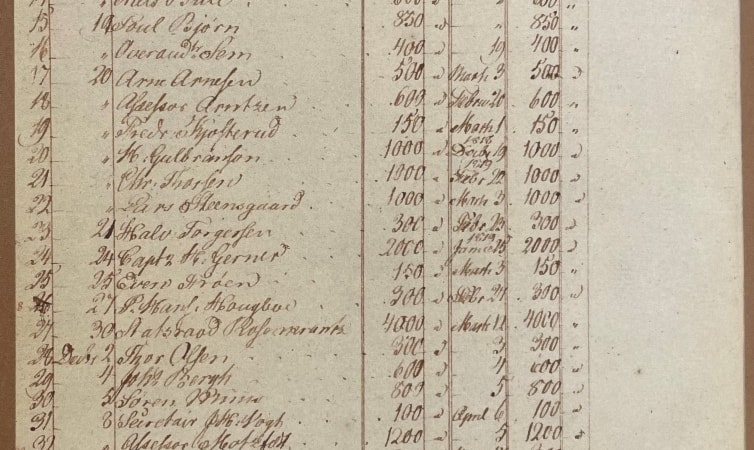 15 19 Poul Bjørn 850 " " 850 "
16 " Overaudtr Sem 400 " 19 400 "
17 20 Arne Arnesen 500 " Marts 3 500 "
18 " Assessor Arntzen 600 " Febru 20 600 "
19 " Fredr Kiosterud 150 " Marts 1 150 "
20 " H. Gulbranson 1000 " 1818 Decbr 19 1000 "
21 " Chr. Thorsen 1000 " 1819 Febr 22 1000 "
22 " Lars Steensgaard 1000 " Marts 3 1000 "
23 21 Halv Torgersen 300 " Febr 23 300 "
24 24 Captn H. Gerner 2000 " 1819 Januar 2000 "
25 25 Even Frøen 150 " Marts 3 150 "
27 P. Hans. Hougboe 300 " Febr 300 "
27 30 Statsraad Rosencrantz 4000 " Marts 4000 "
28 Decbr 2 Thor Olsen 300 " 3 300 "
29 4 Johs Bergh 600 " 4 600 "
30 5 Søren 800 " 5 800 "
31 8 Secretair Vogh 100 " April 6 100 "
32 " Assessor Motzfelt 1200 " 5 1200 "